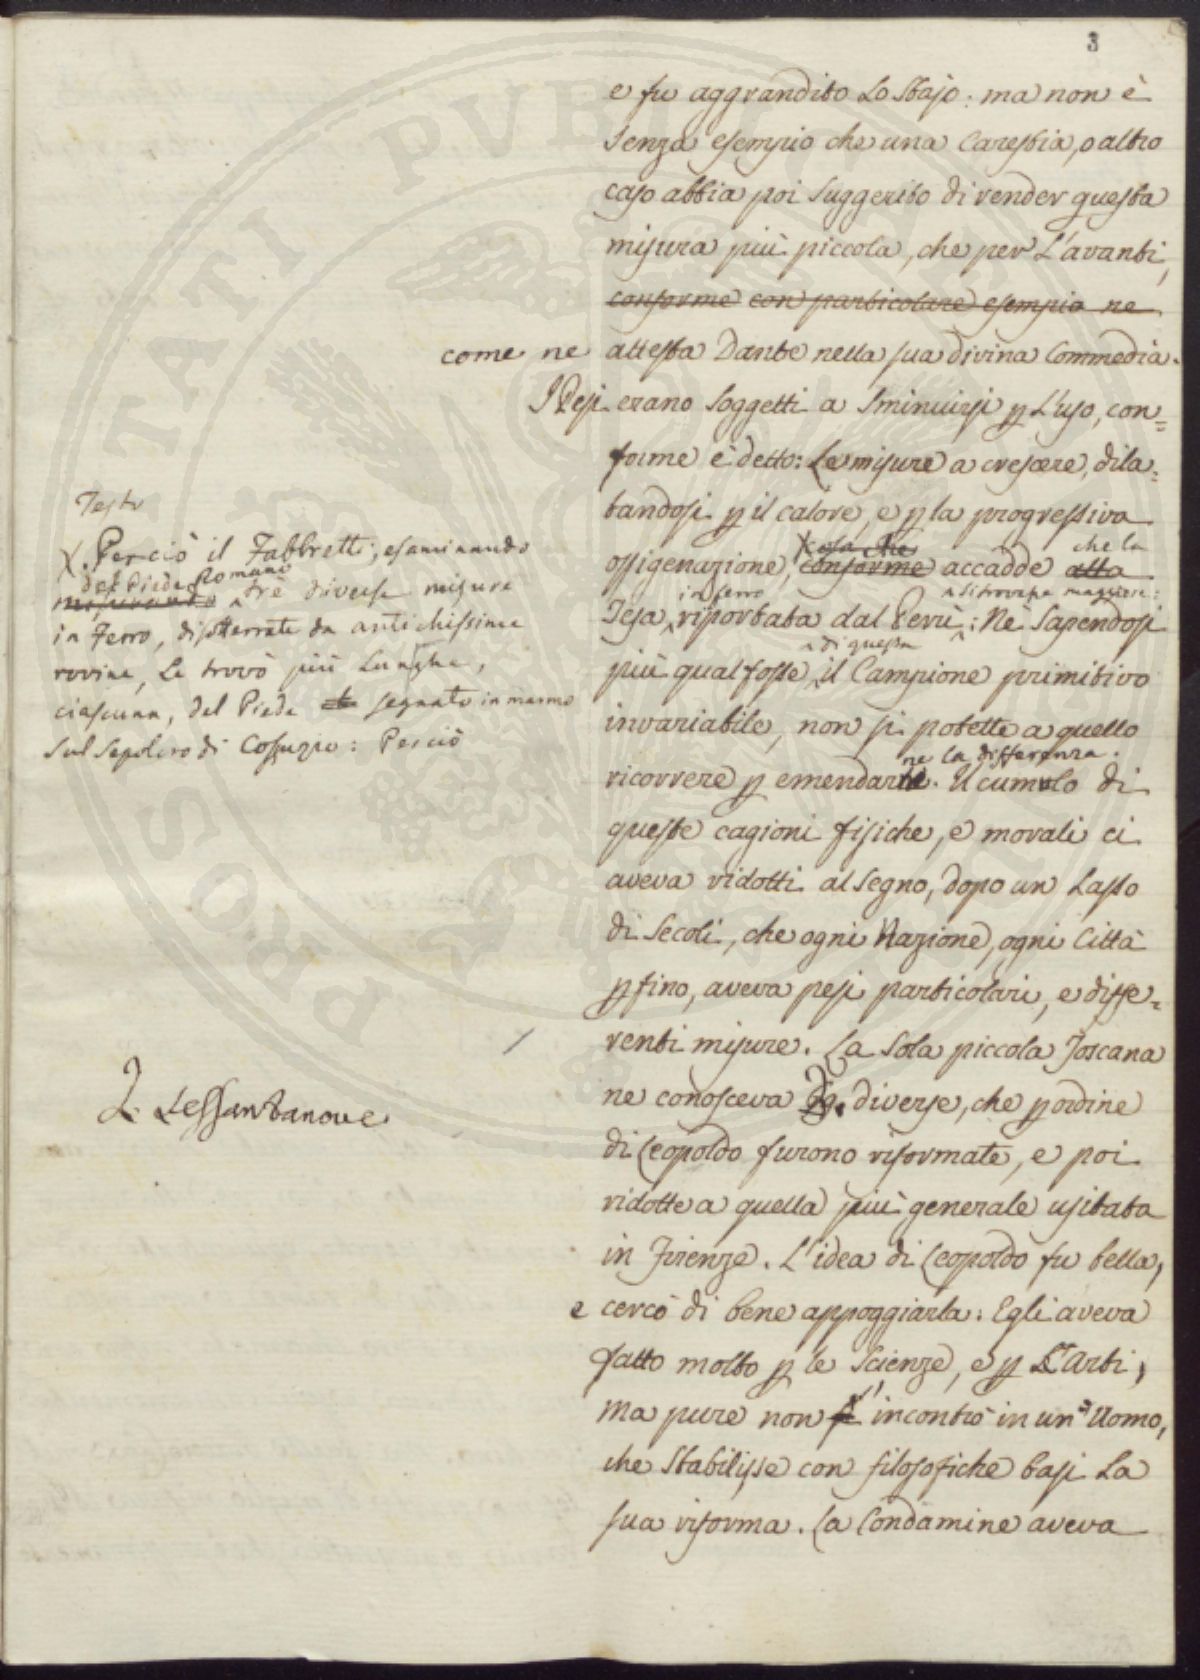 3
e fu aggrandito Lo Stajo: ma non è
senza esempio che una Carestia, o altro
caso abbia poi suggerito di render questa
misura più piccola, che per L'avanti,
conforme con particolare esempio ne
come ne attesta Dante nella sua divina Commedia.
I Pesi erano soggetti a sminuirsi p L'uso, con=
forme è detto: Le misure a crescere, dila=
tandosi p il calore, e p la progressiva
ossigenazione, conforme accadde alla
cosa che
che la
Tesa riportata dal Perù: Nè sapendosi
in ferro
si trovepe maggiore:
più qual fosse il Campione primitivo
di questa
invariabile, non si potette a quello
ricorrere p emendar. Il cumulo di
ne la differenza.
queste cagioni fisiche, e morali ci
aveva ridotti al segno, dopo un Lasso
di secoli, che ogni Nazione, ogni Città
pfino, aveva pesi particolari, e diffe=
renti misure. La sola piccola Toscana
ne conosceva diverse, che p ordine
di Leopoldo furono riformate, e poi
ridotte a quella più generale usitata
in Firenze. L'idea di Leopoldo fu bella,
e cercò di bene appoggiarla: Egli aveva
fatto molto p le Scienze, e p L'Arti,
ma pure non s'incontrò in un Uomo,
che stabilisse con filosofiche basi La
sua riforma. La Condamine aveva
Testo
X. Perciò il Fabbretti, esaminando
del Piede Romano
misurando trè diverse misure
in Ferro, disotterrate da antichissime
rovine, Le trovò più Lunghe,
ciascuna, del Piede segnato in marmo
sul sepolcro di Cossuzio: Perciò
2. sessantanove
PROSPERITATI PVBLICAE